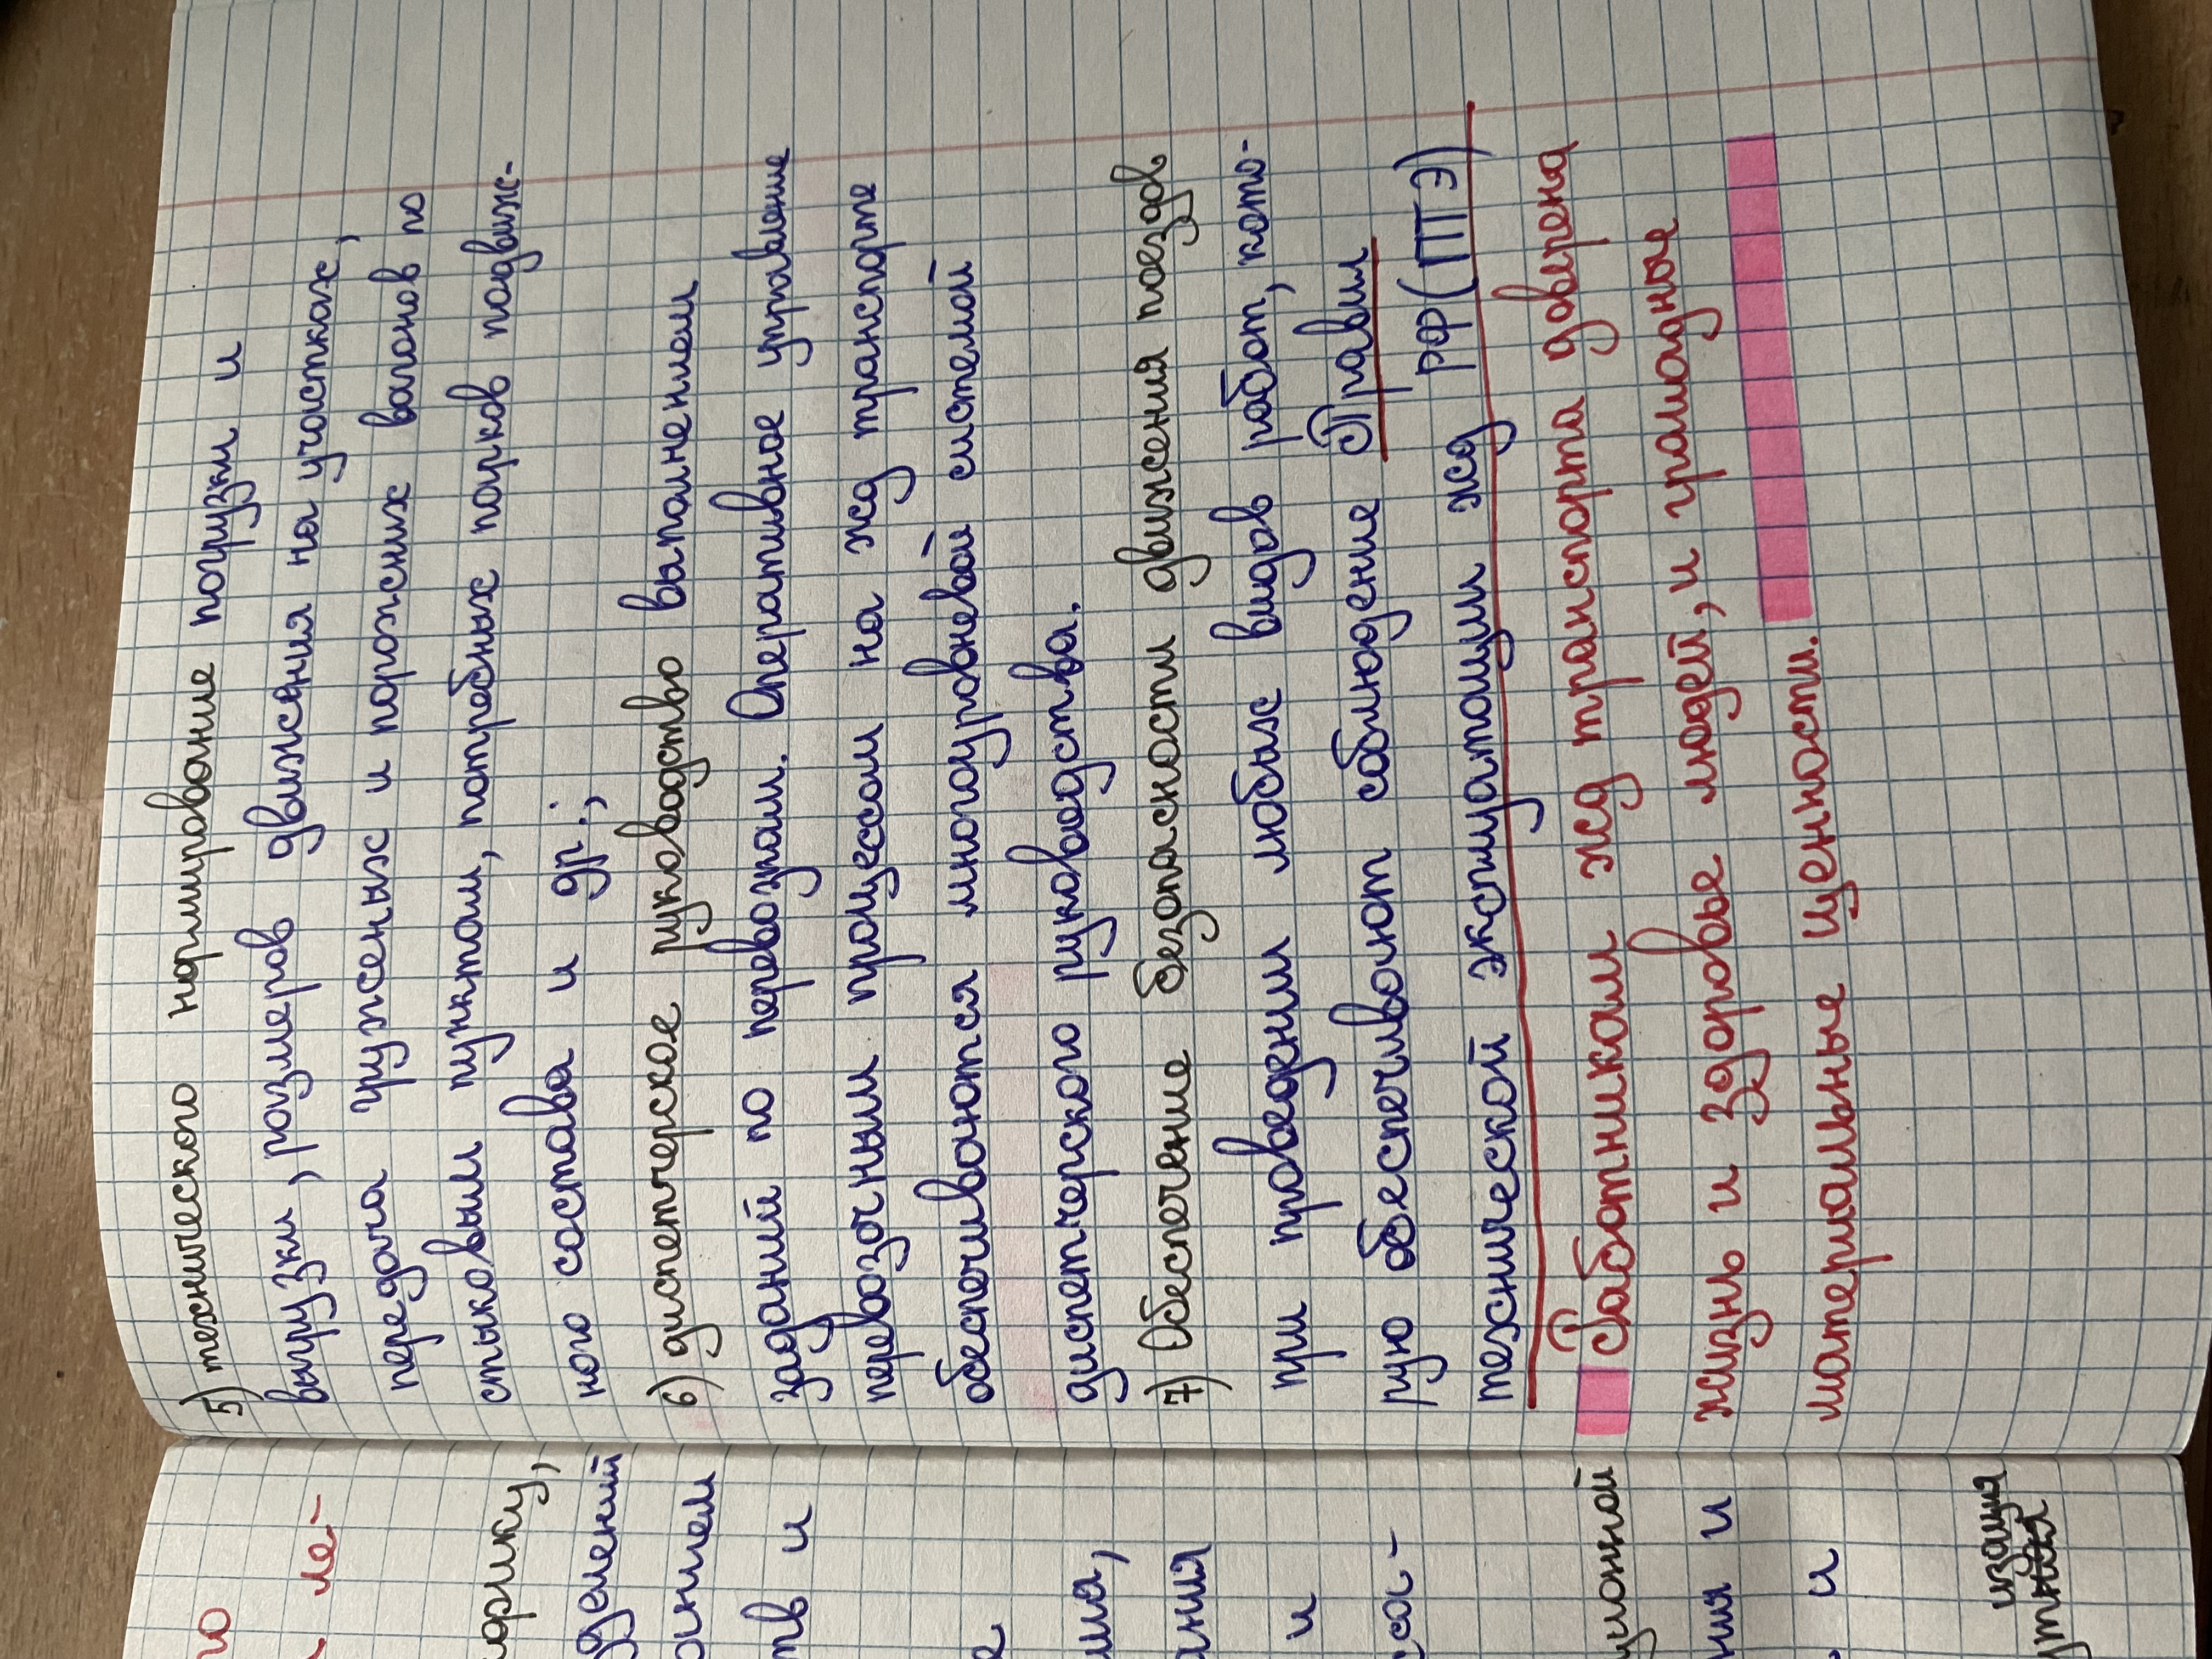 5) технического нормирование погрузки и
выгрузки, размеров движения на участках,
передача груженых и порожних вагонов по
стыковым пунктам, потребных парков подвиж-
ного состава и др.;
6) диспетчерское руководство выполнением
заданий по перевозкам. Оперативное управление
перевозочным процессом на жд транспорте
обеспечиваются многоуровневой системой
диспетчерского руководства.
7) Обеспечение безопасности движения поездов
при проведении любых видов работ, кото-
рую обеспечивают соблюдение Правил
технической эксплуатации жд РФ (ПТЭ)
Работникам жд транспорта доверена
жизнь и здоровье людей, и громадное
материальные ценности.
го
ле-
орику,
делений
тв и
ния
и
са-
ционной
ния и
и
изация